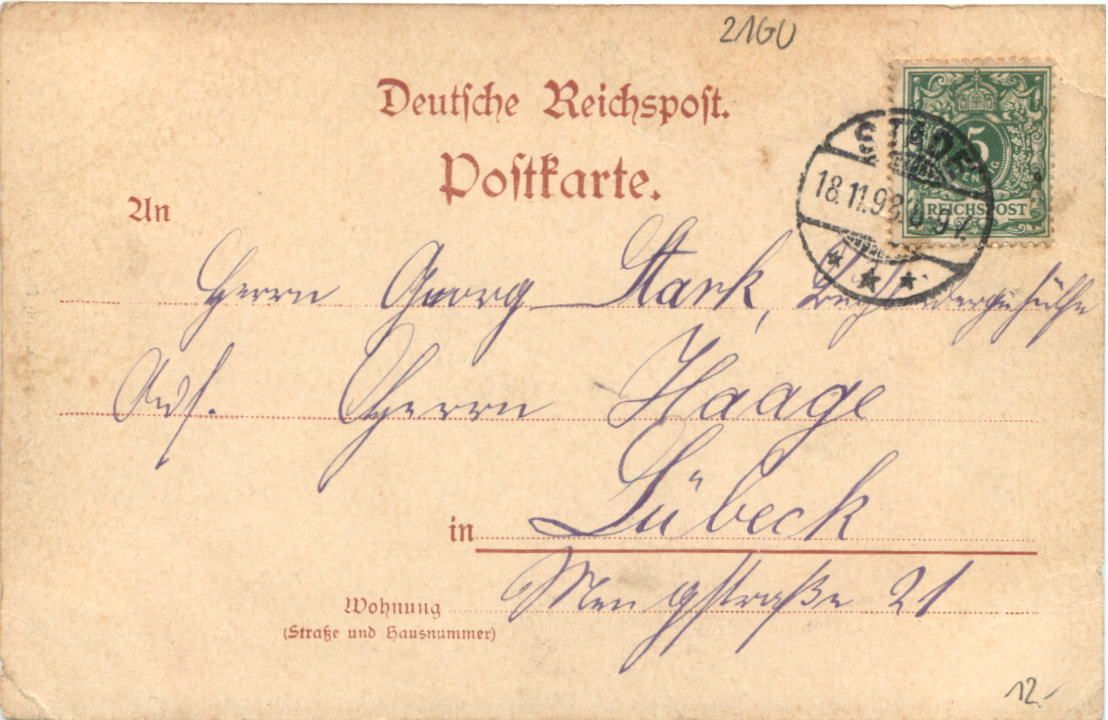 21GU
Deutsche Reichspost.
Postkarte.
5
REICHSPOST
STADE
18.11.98
An
Herrn Georg Stark,
Herrn Haage
in Lübeck
Wohnung Mengstraße 21
(Straße und Hausnummer)
12.-